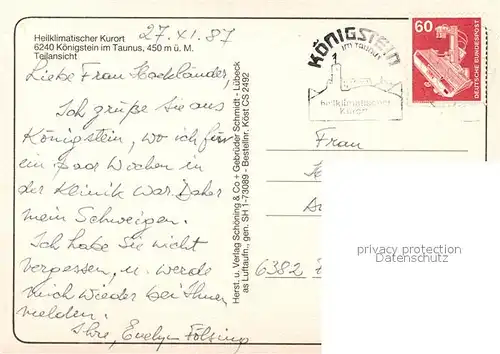 Heilklimatischer Kurort
6240 Königstein im Taunus, 450 m ü. M.
Teilansicht
27. XI. 87
Liebe Frau Hackländer,
Ich grüße Sie aus
Königstein, wo ich für
ein paar Wochen in
der Klinik war. Daher
mein Schweigen.
Ich habe Sie nicht
vergessen, u. werde
mich wieder bei Ihnen
melden.
Ihre, Evelyn Fölsing
Herst. u. Verlag Schöning & Co + Gebrüder Schmidt - Lübeck
as Luftaufn., gen. SH 1-73089 - Bestellnr. Köst CS 2492
KÖNIGSTEIN
IM TAUNUS
heilklimatischer
Kurort
60
DEUTSCHE BUNDESPOST
Frau
6382
privacy protection
Datenschutz